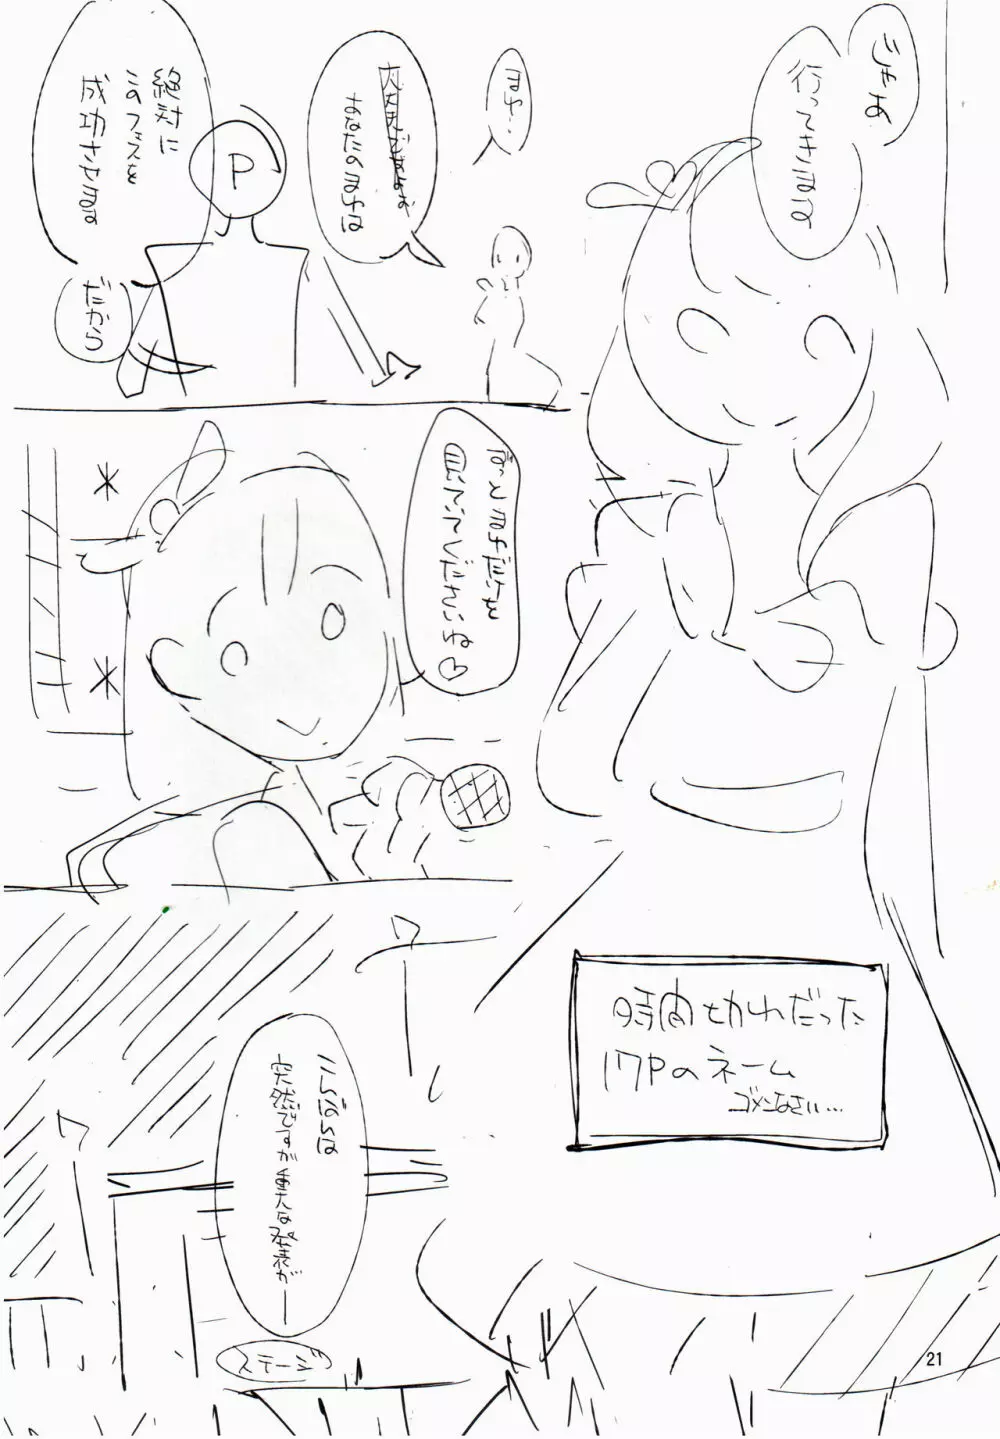 じゃあ
行ってきます
まゆ・
あなたのまゆは
絶対に
このフェスを
成功させます
だから
P
ずっとまゆだけを
見ててくださいね♡
こんばんは
突然ですが重大な発表がー
ステージ
時間切れだった
17Pのネーム
ゴメンなさい…
21